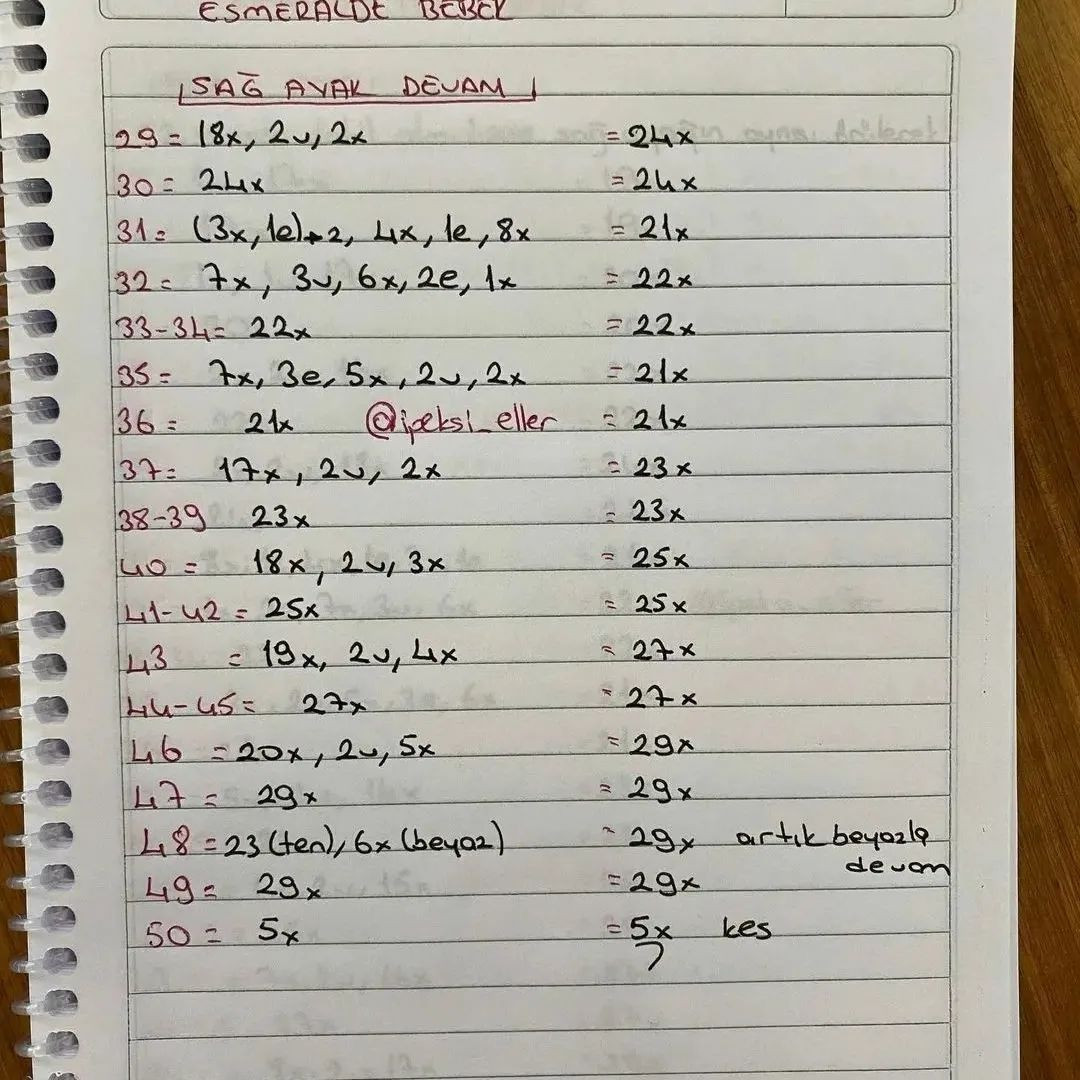 ESMERALDE BEBEK
SAĞ AYAK DEVAM
29 = 18x, 2v, 2x = 24x
30 = 24x = 24x
31 = (3x, 1e)*2, 4x, 1e, 8x = 21x
32 = 7x, 3v, 6x, 2e, 1x = 22x
33-34 = 22x = 22x
35 = 7x, 3e, 5x, 2v, 2x = 21x
36 = 21x @ipeksi_eller = 21x
37 = 17x, 2v, 2x = 23x
38-39 23x = 23x
40 = 18x, 2v, 3x = 25x
41-42 = 25x = 25x
43 = 19x, 2v, 4x = 27x
44-45 = 27x = 27x
46 = 20x, 2v, 5x = 29x
47 = 29x = 29x
48 = 23 (ten), 6x (beyaz) = 29x artık beyazla
devam
49 = 29x = 29x
50 = 5x = 5x kes